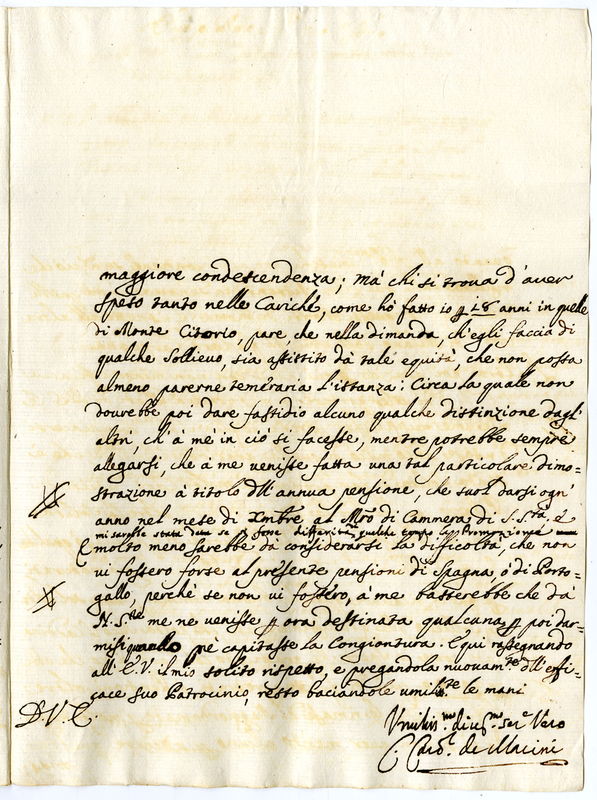 maggiore condescendenza; mà chi si troua d'auer
speso tanto nelle Cariche, come hò fatto io p 28 anni in quelle
di Monte Citorio, pare, che nella dimanda, ch'egli faccia di
qualche Sollieuo, sia assistito dà tale equità, che non possa
almeno parerne temeraria l'istanza: Circa la quale non
dourebbe poi dare fastidio alcuno qualche distinzione dagl'
altri, ch'à mè in ciò si facesse, mentre potrebbe sempre
allegarsi, che à me venisse fatta una tal particolare dimo=
strazione à titolo dll'annua pensione, che suol darsi ogn'
anno nel mese di Xmbre al Mro di Cammera di S. Stà, e
mi sarebbe stata data se p qualche tempo la Promozione
E molto meno sarebbe dà considerarsi la difficoltà, che non
ui fossero forse al presente pensioni di Spagna, ò di Porto=
gallo, perchè se non ui fossero, à me basterebbe che dà
N. Sre me ne venisse p ora destinata qualcuna p poi dar=
misi quando nè capitasse la Congiontura. E qui rassegnando
all'E.V. il mio solito rispetto, e pregandola nuouamte dll'effi=
cace suo Patrocinio, resto baciandole umilmte le mani
D.V.E.
Vmiliss.mo diu.mo ser.e Vero
C. Card. de Marini